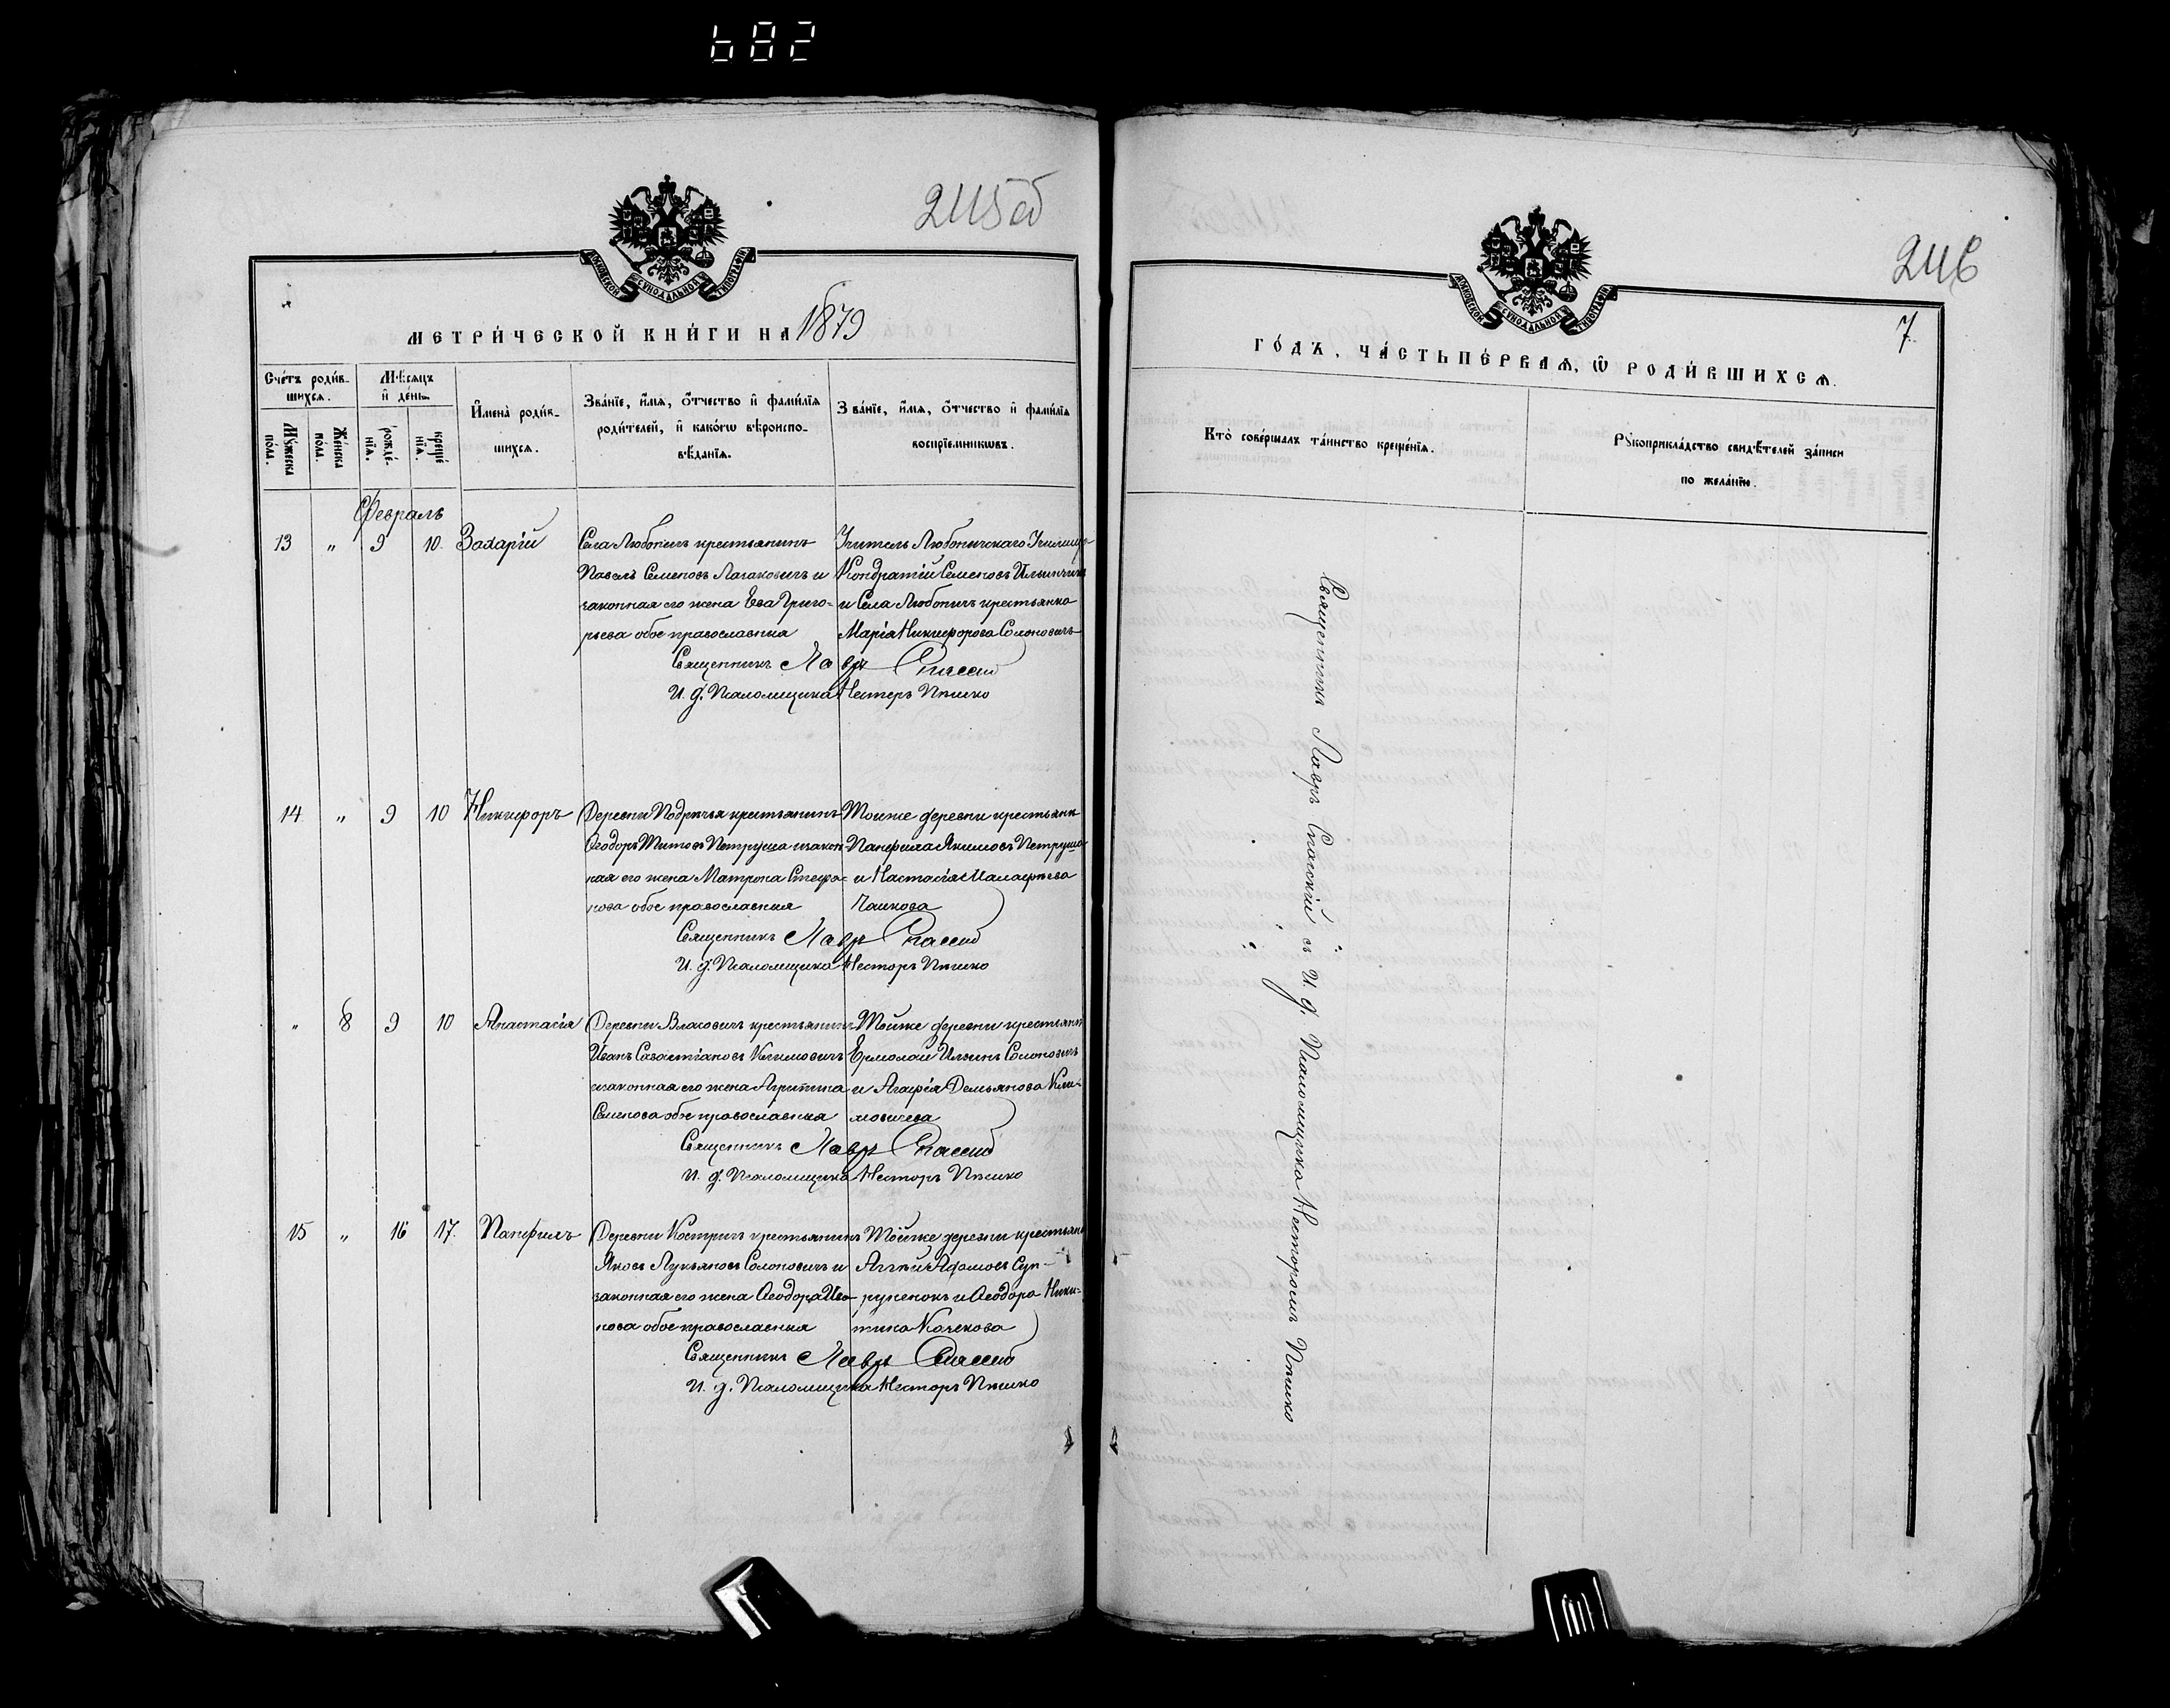 682
245об
МОСКОВСКОЙ СѴНОДАЛЬНОЙ ТИПОГРАФІИ
МЕТРИ́ЧЕСКОЙ КНИ́ГИ НА 1879
Сче́тъ роди́в-
шихсѧ.
Мѣ́сѧцъ
и҆ де́нь.
Мꙋ́жеска
по́ла.
Же́нска
по́ла.
рожде́-
нїѧ.
креще́
нїѧ.
И҆мена̀ роди́в-
шихсѧ.
Зва́нїе, и҆́мѧ, ѻ҆́тчество и҆ фами́лїѧ
роди́телей, и҆ како́гѡ вѣроиспо-
вѣ́данїѧ.
Зва́нїе, и҆́мѧ, ѻ҆́тчество и҆ фами́лїѧ
воспрїе́мникѡвъ.
Февраль
13 " 9 10. Захарій
Села Любоничъ крестьянинъ
Павелъ Семеновъ и
законная его жена Ева Григо-
рьева обое православныя
Учитель Любоничскаго
Кондратій Семеновъ
и Села Любоничъ крестьянка
Марія Никифорова Солоновичъ
Священникъ Лавръ Спасскій
И. д. Псаломщика Несторъ Пѣшко
14 " 9 10 Никифоръ
Деревни Подрѣчья крестьянинъ
Ѳеодоръ Титовъ Петруша и закон-
ная его жена Матрона Стефа-
нова обое православныя
Тойже деревни крестьян
Панфила Якимовъ Петруша
и Настасія
Чайкова
Священникъ Лавръ Спасскій
И. д. Псаломщика Несторъ Пѣшко
" 8 9 10 Анастасія
Деревни Власовичъ крестьянинъ
Иванъ Савастіановъ Климовичъ
и законная его жена Агрипина
Семенова обое православныя
Тойже деревни крестьяни
Ермолай Ильинъ Солоновичъ
и Агафія Демьянова Кли-
мовичева
Священникъ Лавръ Спасскій
И. д. Псаломщика Несторъ Пѣшко
15 " 16 17. Панфилъ
Деревни Костричъ крестьянинъ
Яковъ Лукьяновъ Солоновичъ и
законная его жена Ѳеодора Ива-
нова обое православныя
Тойже деревни крестьяни
Адамовъ Суп-
рупенокъ и Ѳеодора Ники-
тина
Священникъ Лавръ Спасскій
И. д. Псаломщика Несторъ Пѣшко
246
МОСКОВСКОЙ СѴНОДАЛЬНОЙ ТИПОГРАФІИ
7.
ГО́ДЪ, ЧА́СТЬ ПЕ́РВАѦ, Ѽ РОДИ́ВШИХСѦ.
Кто̀ соверша́лъ та́инство креще́нїѧ.
Рꙋкоприкла́дство свидѣ́телей за́писи
по жела́нїю.
Священникъ Лавръ Спасскій съ И. д. Псаломщика Несторомъ Пѣшко